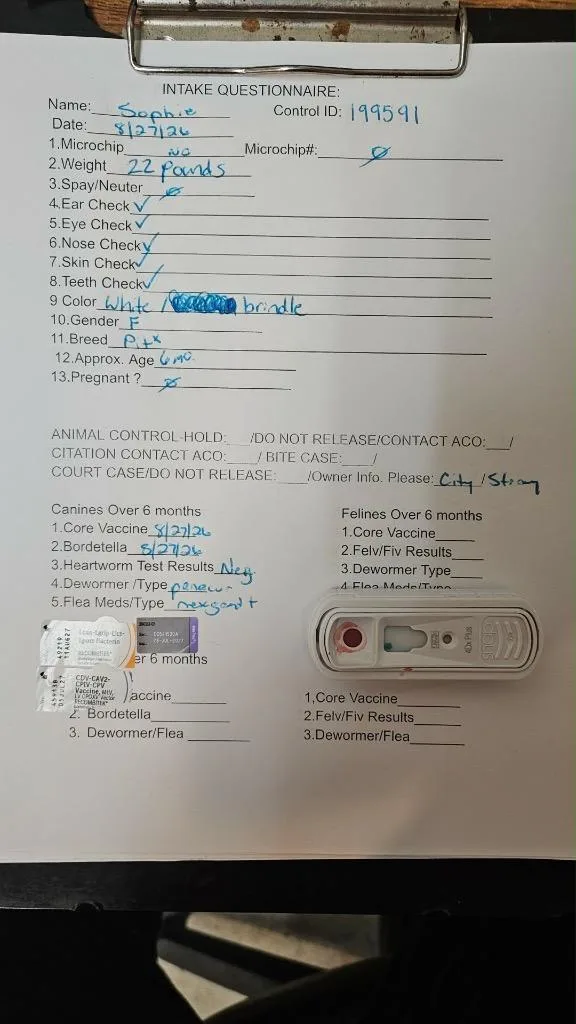 INTAKE QUESTIONNAIRE:
Name: Sophie Control ID: 199591
Date: 8/27/26
1.Microchip NO Microchip#: Ø
2.Weight 22 pounds
3.Spay/Neuter Ø
4.Ear Check ✓
5.Eye Check ✓
6.Nose Check ✓
7.Skin Check ✓
8.Teeth Check ✓
9 Color White / brindle
10.Gender F
11.Breed Pitx
12.Approx. Age 6 mo.
13.Pregnant ? Ø
ANIMAL CONTROL-HOLD:___/DO NOT RELEASE/CONTACT ACO:___/
CITATION CONTACT ACO:____/ BITE CASE:____/
COURT CASE/DO NOT RELEASE: ____/Owner Info. Please: City / Stray
Canines Over 6 months
1.Core Vaccine 8/27/26
2.Bordetella 8/27/26
3.Heartworm Test Results Neg.
4.Dewormer /Type
5.Flea Meds/Type
er 6 months
accine
2. Bordetella
3. Dewormer/Flea
Felines Over 6 months
1.Core Vaccine
2.Felv/Fiv Results
3.Dewormer Type
4 Flea Meds/Type
1,Core Vaccine
2.Felv/Fiv Results
3.Dewormer/Flea
CDV-CAV2-
CPIV-CPV
Vaccine, MLV,
RECOMBITEK
snap
4Dx Plus